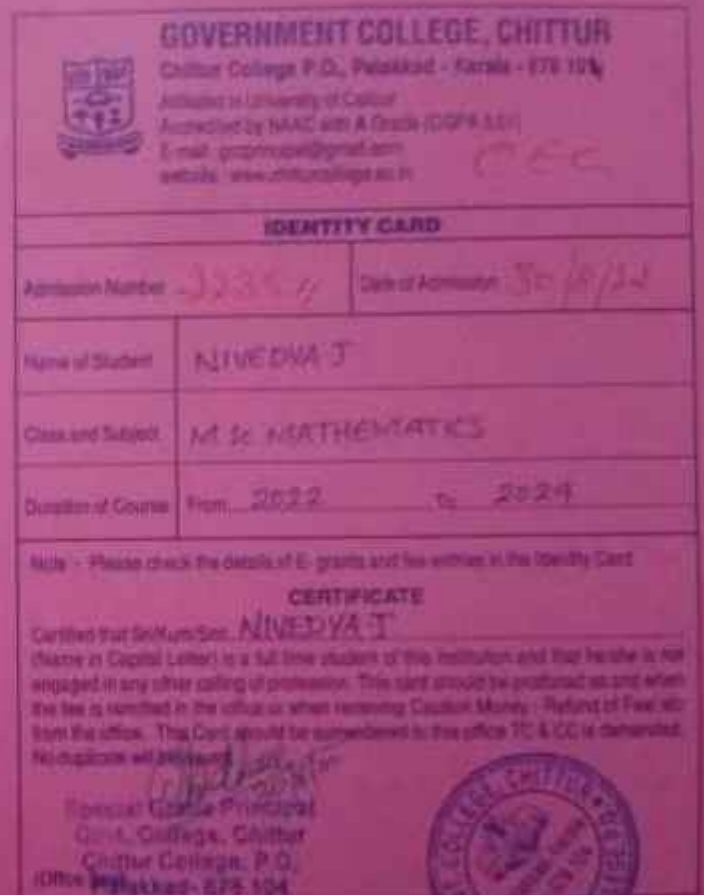 GOVERNMENT COLLEGE, CHITTUR
Chittur College P.O., Palakkad - Kerala - 678 104
Affiliated to University of Calicut
Accredited by NAAC with A Grade
E-mail:
website: www.chitturcollege.ac.in
OEC
IDENTITY CARD
Admission Number
Date of Admission
Name of Student NIVEDYA J
Class and Subject M Sc MATHEMATICS
Duration of Course From 2022 To 2024
Note :- Please check the details of E- grants and fee entries in the Identity Card
CERTIFICATE
Certified that Sri/Kum/Smt. NIVEDYA J
(Name in Capital Letter) is a full time student of this institution and that he/she is not
engaged in any other calling of profession. This card should be produced as and when
the fee is remitted in the office or when receiving Caution Money - Refund of Fee etc
from the office. The Card should be surrendered to this office TC & CC is demanded.
No duplicate will be issued
Special Grade Principal
Govt. College, Chittur
Chittur College, P.O.
(Office Palakkad- 678 104
COLLEGE, CHITTUR